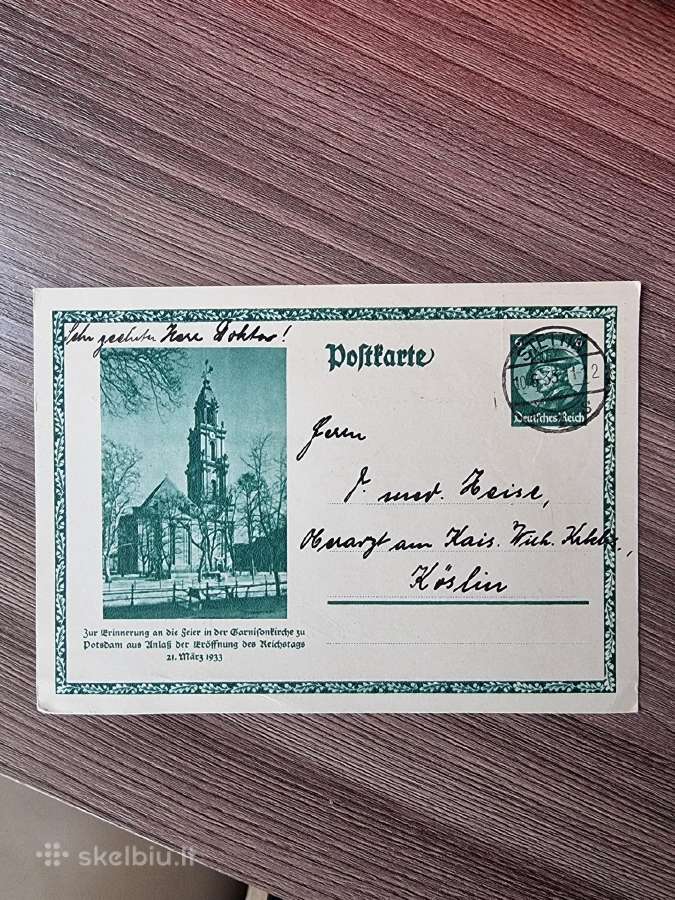 Sehr geehrter Herr Doktor!
Postkarte
STETTIN
Deutsches Reich
Herrn
Dr. med. Heise,
Oberarzt am Kais. Wilh.
Köslin
Zur Erinnerung an die Feier in der Garnisonkirche zu
Potsdam aus Anlaß der Eröffnung des Reichstags
21. März 1933
skelbiu.lt